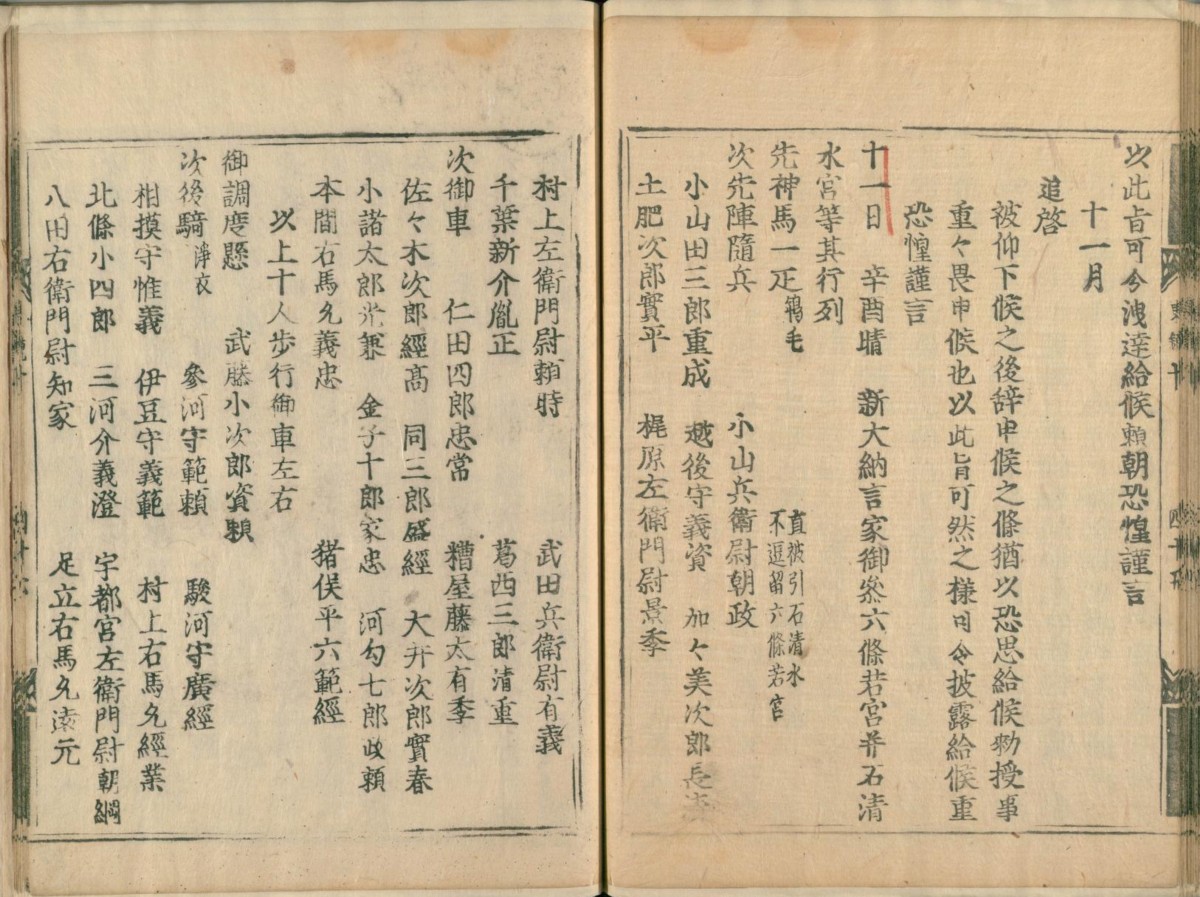 以此旨可令洩達給候頼朝恐惶謹言
十一月
追啓
被仰下候之後辞申候之條猶以恐思給候勅授事
重々畏申候也以此旨可然之様可令披露給候重
恐惶謹言
十一日 辛酉晴 新大納言家御參六條若宮并石清
水宮等其行列
先神馬一疋鴾毛 直被引石清水不逗留六條若宮
次先陣隨兵 小山兵衛尉朝政
小山田三郎重成 越後守義資 加々美次郎長清
土肥次郎實平 梶原左衛門尉景季
村上左衛門尉頼時 武田兵衛尉有義
千葉新介胤正 葛西三郎清重
次御車 仁田四郎忠常 糟屋藤太有季
佐々木次郎經高 同三郎盛經 大井次郎實春
小諸太郎光兼 金子十郎家忠 河勾七郎政頼
本間右馬允義忠 猪俣平六範經
以上十人歩行御車左右
御調度懸 武藤小次郎資頼
次後騎淨衣 參河守範頼 駿河守廣經
相摸守惟義 伊豆守義範 村上右馬允經業
北條小四郎 三河介義澄 宇都宮左衛門尉朝綱
八田右衛門尉知家 足立右馬允遠元